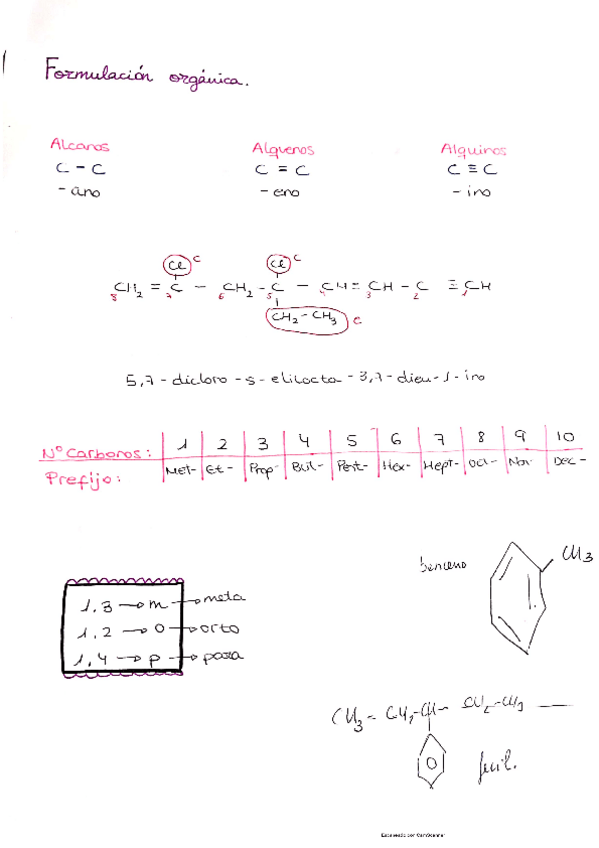 Formulación orgánica.
Alcanos Alquenos Alquinos
C - C C = C C ≡ C
- ano - eno - ino
Cl c Cl c
CH2 = C - CH2 - C - CH = CH - C ≡ CH
8 7 6 5 4 3 2 1
CH2 - CH3 c
5,7 - dicloro - 5 - etilocta - 3,7 - dien - 1 - ino
Nº Carbonos: 1 2 3 4 5 6 7 8 9 10
Prefijo: Met- Et- Prop- But- Pent- Hex- Hept- Oct- Non- Dec-
benceno CH3
1,3 → m → meta
1,2 → o → orto
1,4 → p → para
CH3 - CH2 - CH - CH2 - CH3
fenil.
Escaneado con CamScanner